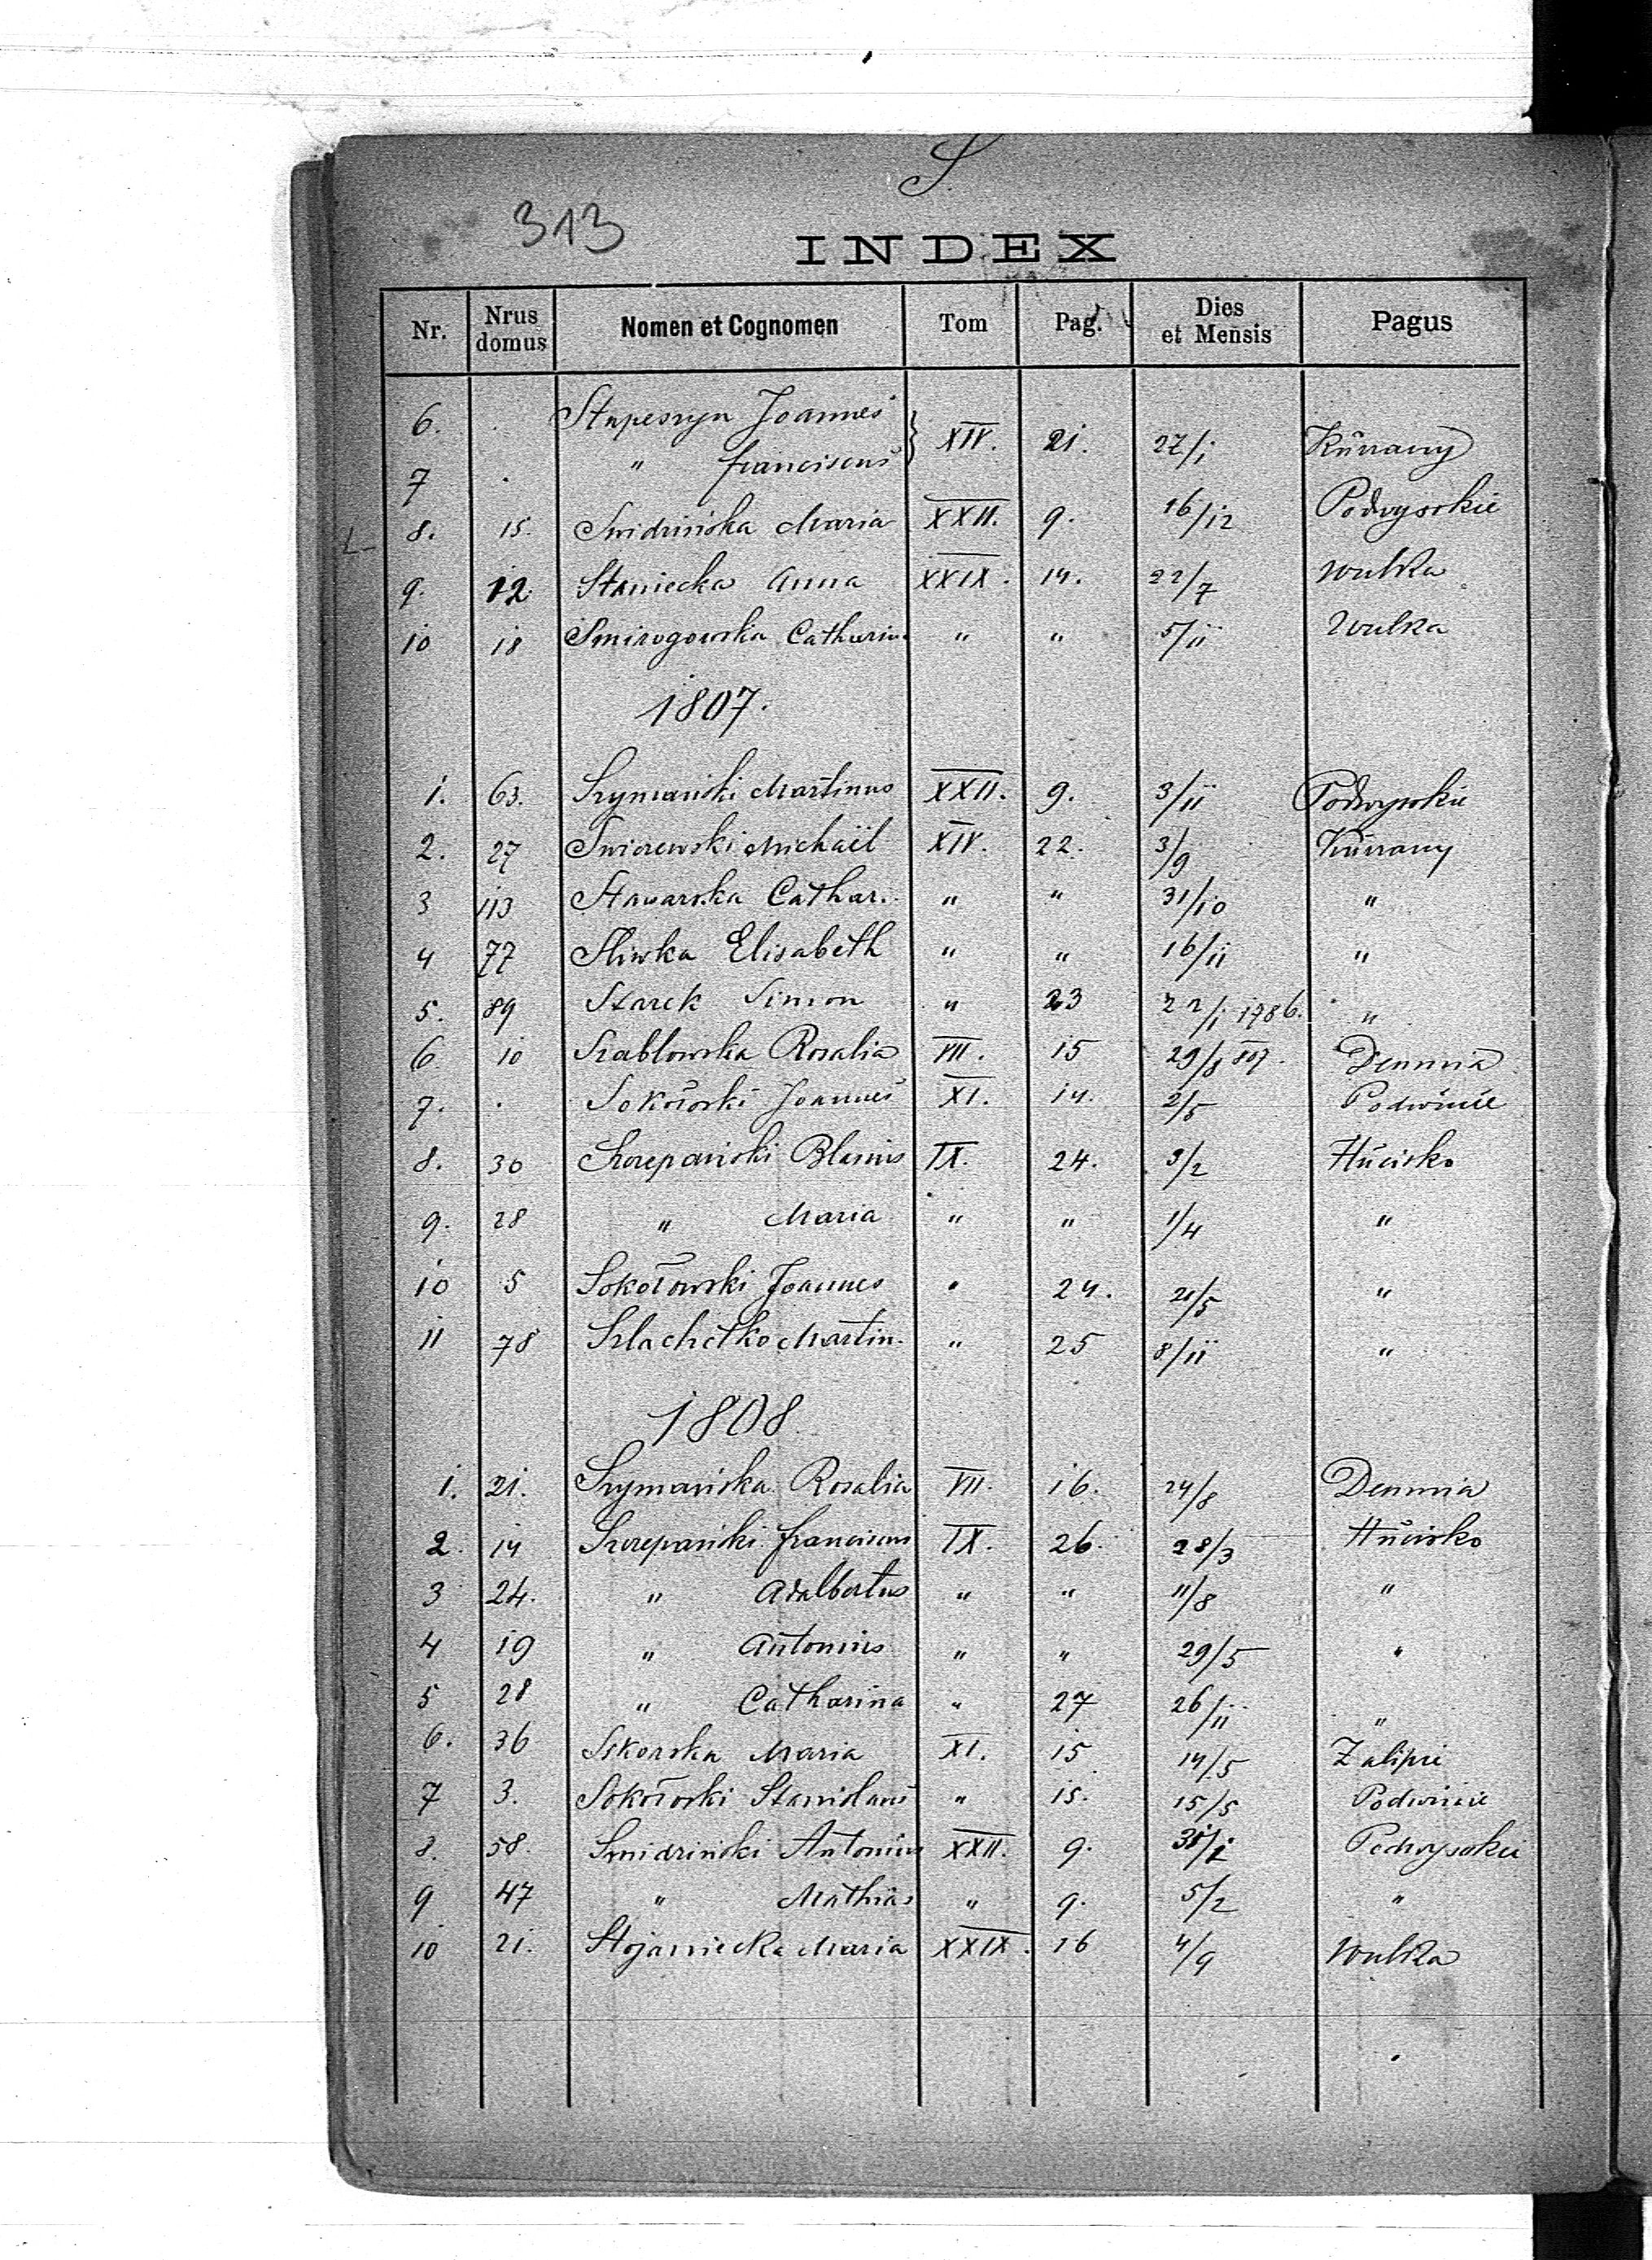 S.
313
INDEX
Nr. Nrus domus Nomen et Cognomen Tom Pag. Dies et Mensis Pagus
6. . Joannes } XIV. 21. 27/1 Kurzany
7 . " Franciscus
8. 15. Maria XXII. 9. 16/12 Podwysokie
9. 12 Staniecka Anna XXIX. 14. 22/7 Wulka
10 18 Catharina " " 5/11 Wulka
1807.
1. 63. Szymański Martinus XXII. 9. 3/11 Podwysokie
2. 27 Michaël XIV. 22. 3/9 Kurzany
3 113 Stawarska Cathar. " " 31/10 "
4 77 Sliwka Elisabeth " " 16/11 "
5. 89 Starek Simon " 23 22/1 1786. "
6 10 Szablowska Rosalia VII. 15 29/8 807. Demnia
7. . Sokołoski Joannes XI. 14. 2/5 Podwinie
8. 30 Szczepański Blasius IX. 24. 3/2 Hucisko
9. 28 " Maria " " 1/4 "
10 5 Sokołowski Joannes " 24. 21/5 "
11 78 Szlachetko Martin. " 25 8/11 "
1808.
1. 21. Szymańska Rosalia VII. 16. 24/8 Demnia
2. 14 Szczepański Franciscus IX. 26. 28/3 Hucisko
3 24. " Adalbertus " " 11/8 "
4 19 " Antonius " " 29/5 "
5 28 " Catharina " 27 26/11 "
6. 36 Sikorska Maria XI. 15 14/5 Zalipie
7 3. Sokołoski Stanislaus " 15. 15/5 Podwinie
8. 58. Antonius XXII. 9. Podwysokie
9 47 " Mathias " 9. 5/2 "
10 21. Stojaniecka Maria XXIX. 16 4/9 Wulka